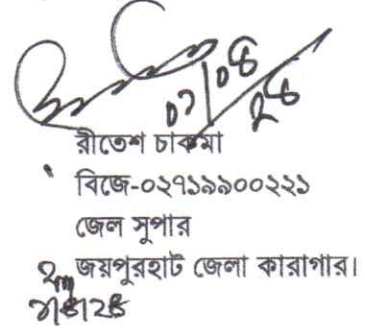 ০১/০৪/২৪
রীতেশ চাকমা
বিজে-০২৭১৯৯০০২২১
জেল সুপার
জয়পুরহাট জেলা কারাগার।